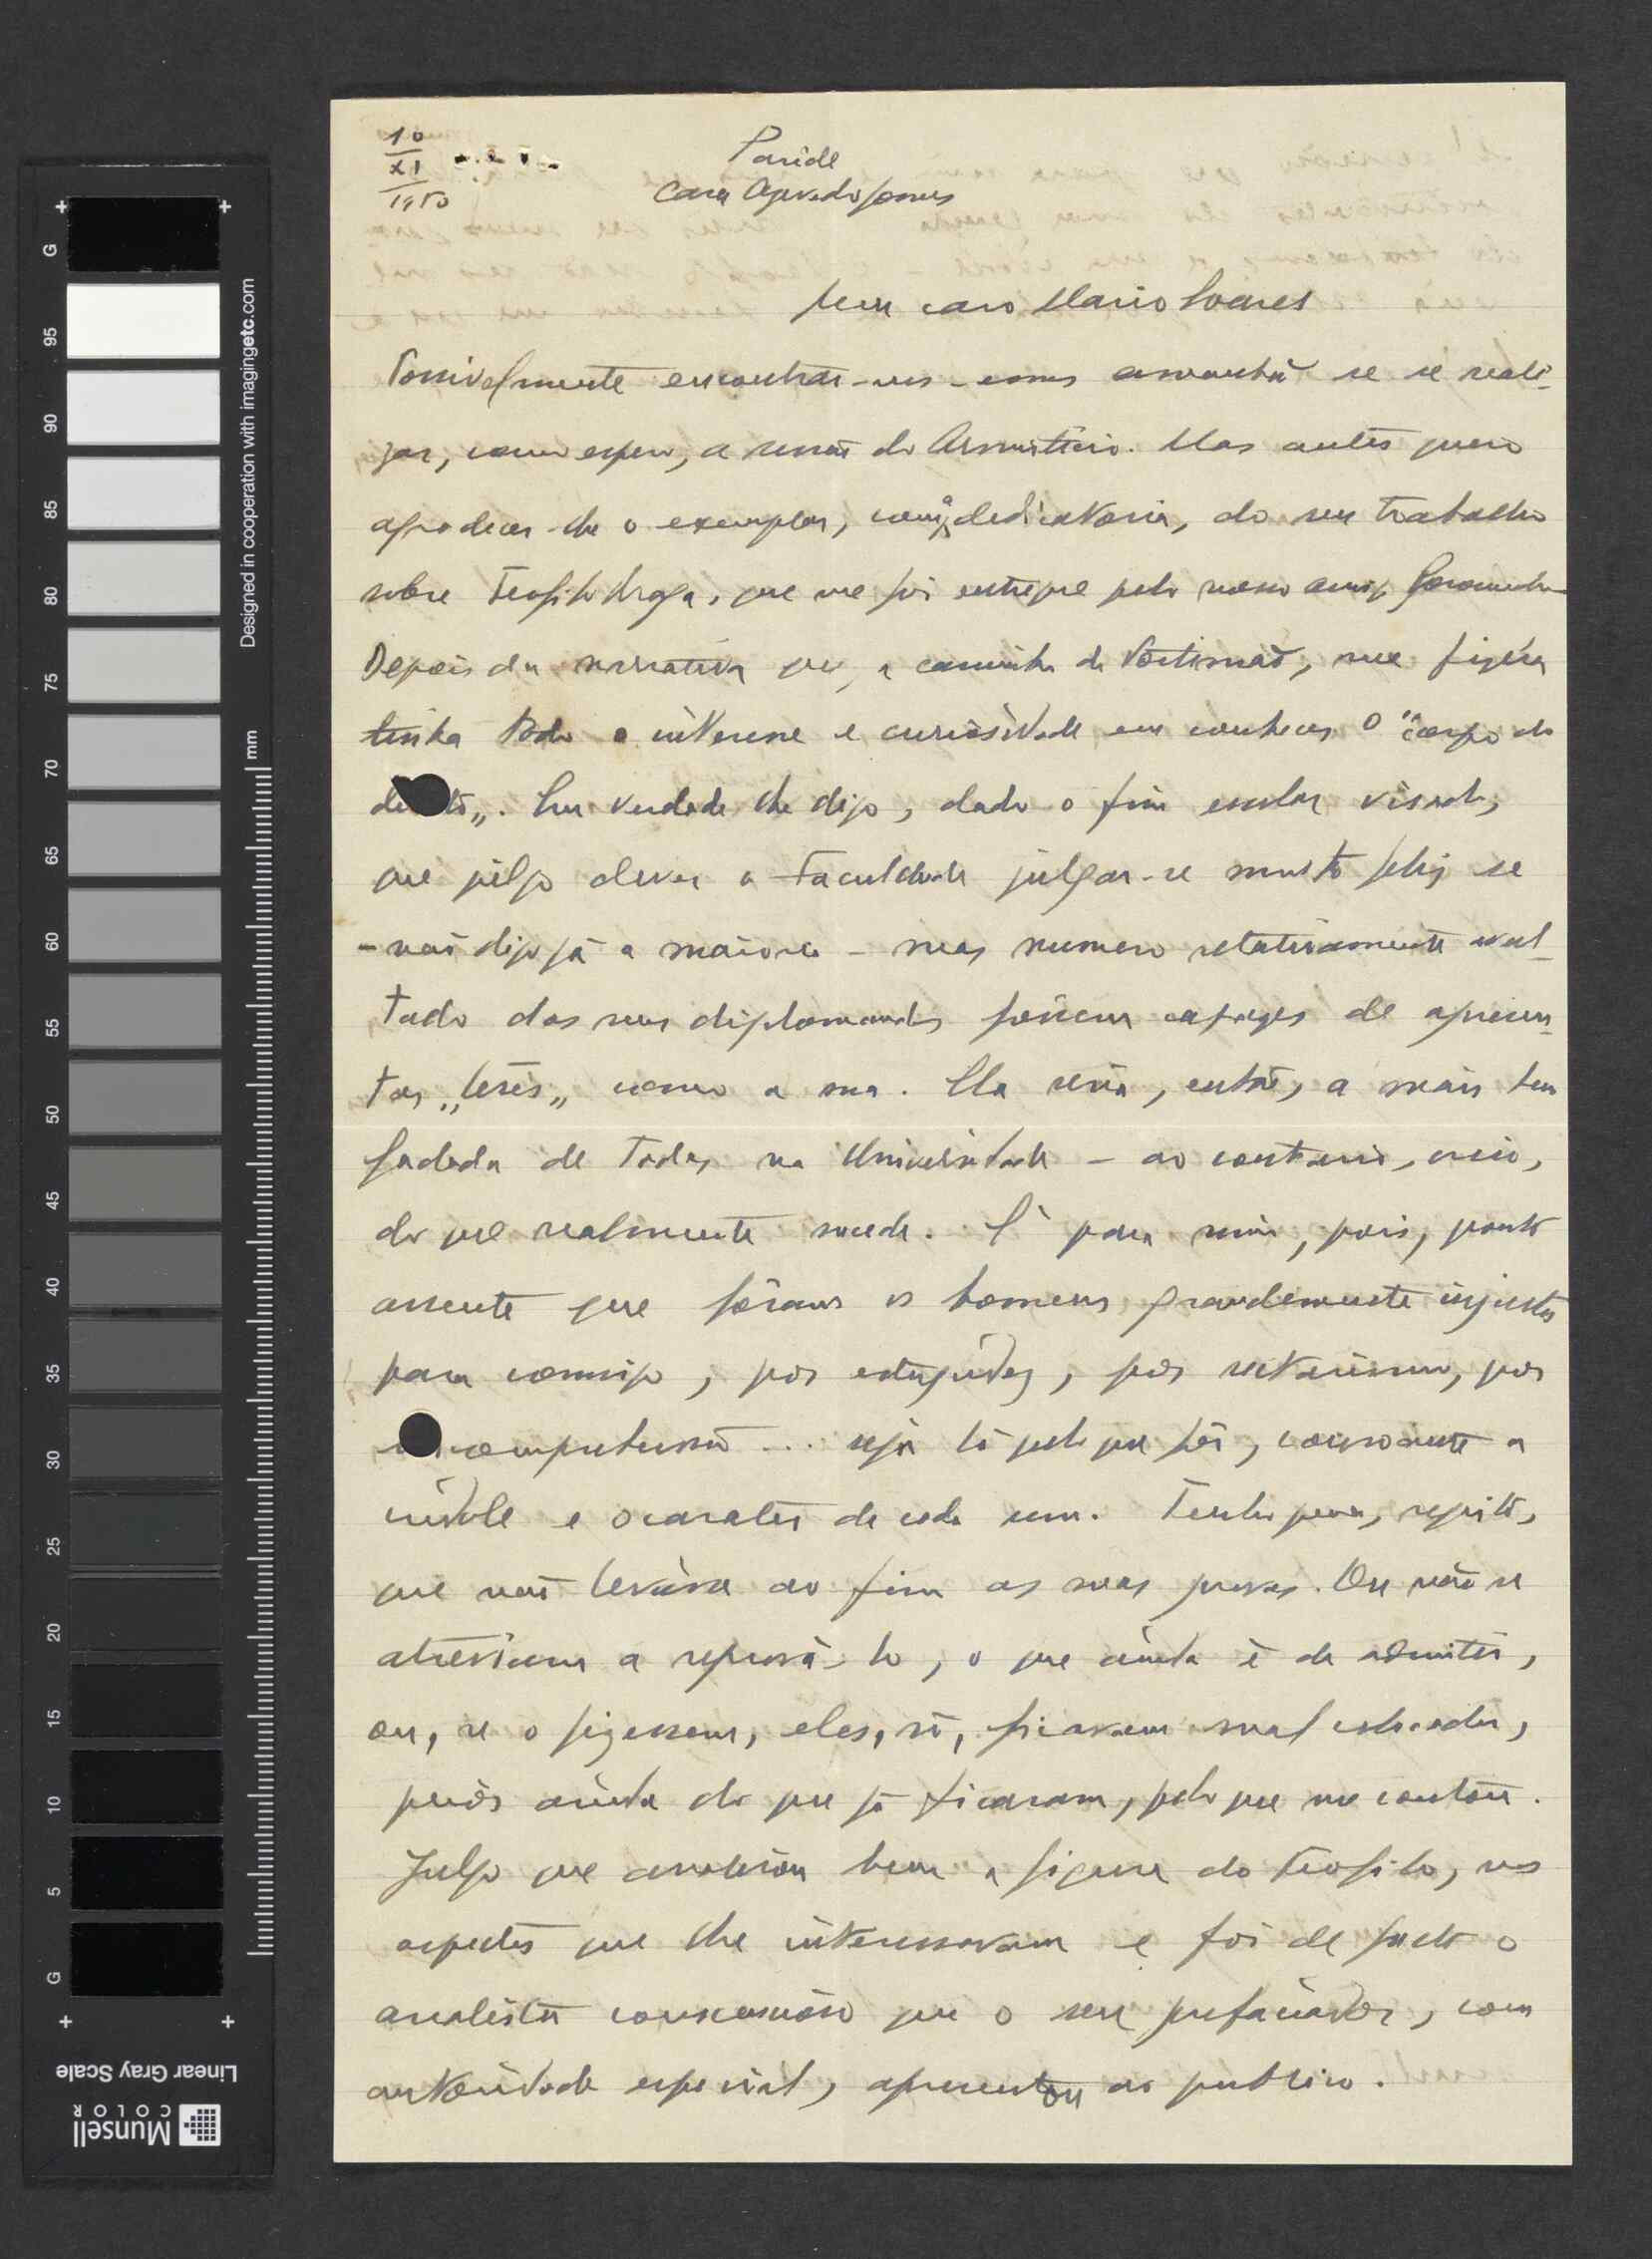 10
XI
1950
Parede
Casa Azevedo Gomes
Meu caro Mario Soares
Possivelmente encontrar-nos-emos amanhã se se reali-
zar, como espero, a sessão do Armisticio. Mas antes quero
agradecer-lhe o exemplar, com a dedicatoria, do seu trabalho
sobre Teofilo Braga, que me foi entregue pelo nosso amigo
Depois da narrativa que, a caminho de Portimão, me fizéra
tinha todo o interesse e curiosidade em conhecer o "corpo do
delito". Em verdade lhe digo, dado o fim escolar visado,
que julgo dever a Faculdade julgar-se muito feliz se
- não digo já a maioria - mas numero relativamente avul-
tado dos seus diplomandos fossem capazes de apresen-
tar "teses" como a sua. Ela seria, então, a mais bem
fadada de todas na Universidade - ao contrario, creio,
do que realmente sucede. É para mim, pois, ponto
assente que fôram os homens grandemente injustos
para comsigo, por estupidez, por sectarismo, por
incompreensão... seja lá pelo que fôr, consoante a
indole e o carater de cada um. Tenho pena, repito,
que não leváva ao fim as suas provas. Ou não se
atreviam a reprová-lo, o que ainda é de admitir,
ou, se o fizessem, eles, só, ficavam mal colocados,
peiór ainda do que já ficaram, pelo que me contou.
Julgo que analisou bem a figura do Teofilo, nos
aspectos que lhe interessavam e foi de facto o
analista consciencioso que o seu prefaciador, com
autoridade especial, apresentou ao publico.
G
95
90
85
80
75
70
65
60
55
50
45
40
35
30
25
20
15
10
5
G
mm
Designed in cooperation with imagingetc.com
Linear Gray Scale
Munsell
COLOR